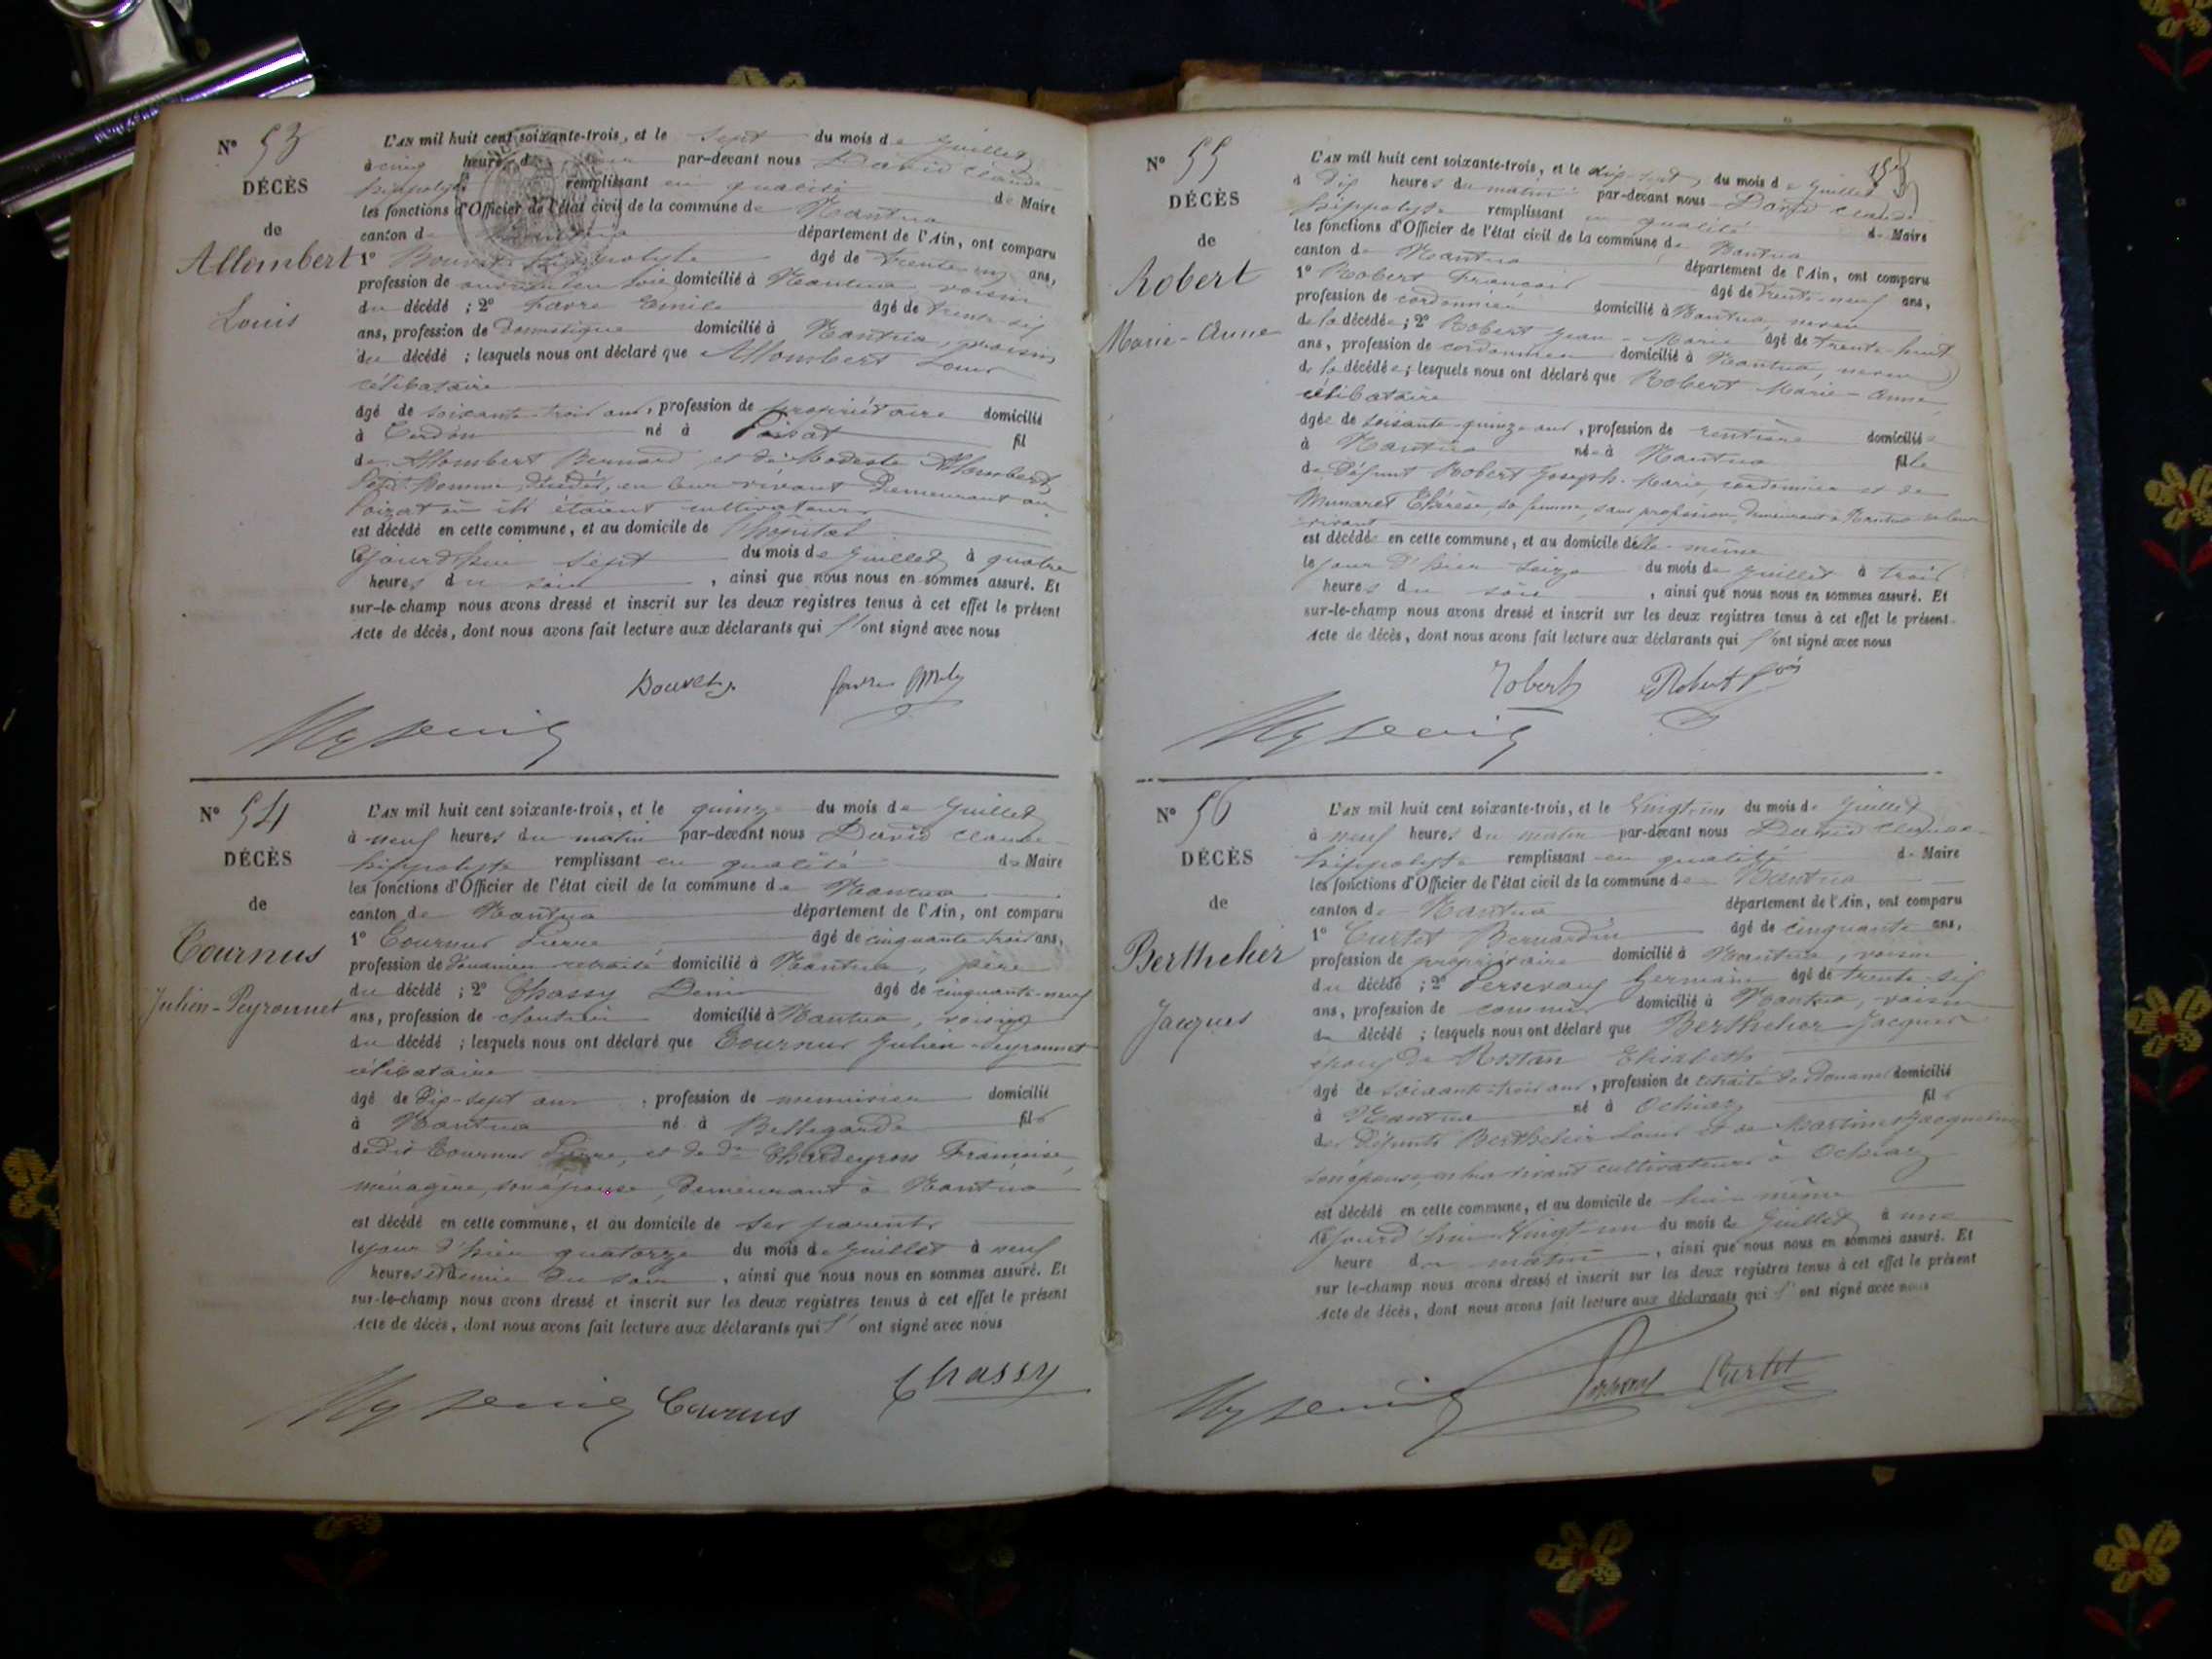 N° 53
DÉCÈS
de
Allombert
Louis
L'AN mil huit cent soixante-trois, et le sept du mois de Juillet
à cinq heures du soir par-devant nous David Claude-
hippolyte remplissant en qualité de Maire
les fonctions d'Officier de l'état civil de la commune de Nantua
canton de Nantua département de l'Ain, ont comparu
1° Bouvet hippolyte âgé de trente ans,
profession de domicilié à Nantua, voisin
du décédé ; 2° Favre Emile âgé de trente-six
ans, profession de domestique domicilié à Nantua, voisin
du décédé ; lesquels nous ont déclaré que Allombert Louis
célibataire
âgé de soixante-trois ans, profession de propriétaire domicilié
à Cerdon né à Poizat fil
de Allombert Bernard, et de Modeste Allombert
décédés, en leur vivant demeurant au
Poizat où ils étaient cultivateurs
est décédé en cette commune, et au domicile de l'hôpital
le jourd'hui sept du mois de Juillet à quatre
heures du soir, ainsi que nous nous en sommes assuré. Et
sur-le-champ nous avons dressé et inscrit sur les deux registres tenus à cet effet le présent
Acte de décès, dont nous avons fait lecture aux déclarants qui l'ont signé avec nous
Bouvet h. favre Emile
N° 54
DÉCÈS
de
Tournus
Julien-Peyronnet
L'AN mil huit cent soixante-trois, et le quinze du mois de Juillet
à neuf heures du matin par-devant nous David Claude-
hippolyte remplissant en qualité de Maire
les fonctions d'Officier de l'état civil de la commune de Nantua
canton de Nantua département de l'Ain, ont comparu
1° Tournus Pierre âgé de cinquante-trois ans,
profession de douanier retraité domicilié à Nantua, père
du décédé ; 2° Chassy Denis âgé de cinquante-neuf
ans, profession de cloutier domicilié à Nantua, voisin
du décédé ; lesquels nous ont déclaré que Tournus Julien-Peyronnet
célibataire
âgé de dix-sept ans, profession de menuisier domicilié
à Nantua né à Bellegarde fils
de dit Tournus Pierre, et de de Chardeyron Françoise,
ménagère, son épouse, demeurant à Nantua
est décédé en cette commune, et au domicile de ses parents
le jour d'hier quatorze du mois de Juillet à neuf
heures et demie du soir, ainsi que nous nous en sommes assuré. Et
sur-le-champ nous avons dressé et inscrit sur les deux registres tenus à cet effet le présent
Acte de décès, dont nous avons fait lecture aux déclarants qui l'ont signé avec nous
Tournus Chassy
N° 55
DÉCÈS
de
Robert
Marie-Anne
L'AN mil huit cent soixante-trois, et le dix-sept du mois de Juillet
à dix heures du matin par-devant nous David Claude-
hippolyte remplissant en qualité de Maire
les fonctions d'Officier de l'état civil de la commune de Nantua
canton de Nantua département de l'Ain, ont comparu
1° Robert François âgé de trente-neuf ans,
profession de cordonnier domicilié à Nantua, neveu
de la décédée ; 2° Robert Jean-Marie âgé de trente-huit
ans, profession de cordonnier domicilié à Nantua, neveu
de la décédée ; lesquels nous ont déclaré que Robert Marie-Anne,
célibataire
âgée de soixante-quinze ans, profession de rentière domiciliée
à Nantua née à Nantua fille
de défunt Robert Joseph-Marie, cordonnier et de
Munaret Thérèse, sa femme, sans profession, demeurant à Nantua en leur
vivant
est décédée en cette commune, et au domicile d'elle-même
le jour d'hier seize du mois de Juillet à trois
heures du soir, ainsi que nous nous en sommes assuré. Et
sur-le-champ nous avons dressé et inscrit sur les deux registres tenus à cet effet le présent
Acte de décès, dont nous avons fait lecture aux déclarants qui l'ont signé avec nous
Robert Robert fçois
N° 56
DÉCÈS
de
Berthelier
Jacques
L'AN mil huit cent soixante-trois, et le vingt-un du mois de Juillet
à neuf heures du matin par-devant nous David Claude-
hippolyte remplissant en qualité de Maire
les fonctions d'Officier de l'état civil de la commune de Nantua
canton de Nantua département de l'Ain, ont comparu
1° Curtet Bernardin âgé de cinquante ans,
profession de propriétaire domicilié à Nantua, voisin
du décédé ; 2° Germain âgé de trente-six
ans, profession de commis domicilié à Nantua, voisin
du décédé ; lesquels nous ont déclaré que Berthelier Jacques
époux de Rostan Elisabeth
âgé de soixante-trois ans, profession de retraité de douane domicilié
à Nantua né à Ochiaz fils
de défunts Berthelier Louis et de Jacqueline
son épouse, en leur vivant cultivateurs à Ochiaz
est décédé en cette commune, et au domicile de lui-même
le jourd'hui vingt-un du mois de Juillet à une
heure du matin, ainsi que nous nous en sommes assuré. Et
sur le-champ nous avons dressé et inscrit sur les deux registres tenus à cet effet le présent
Acte de décès, dont nous avons fait lecture aux déclarants qui l'ont signé avec nous
Curtet